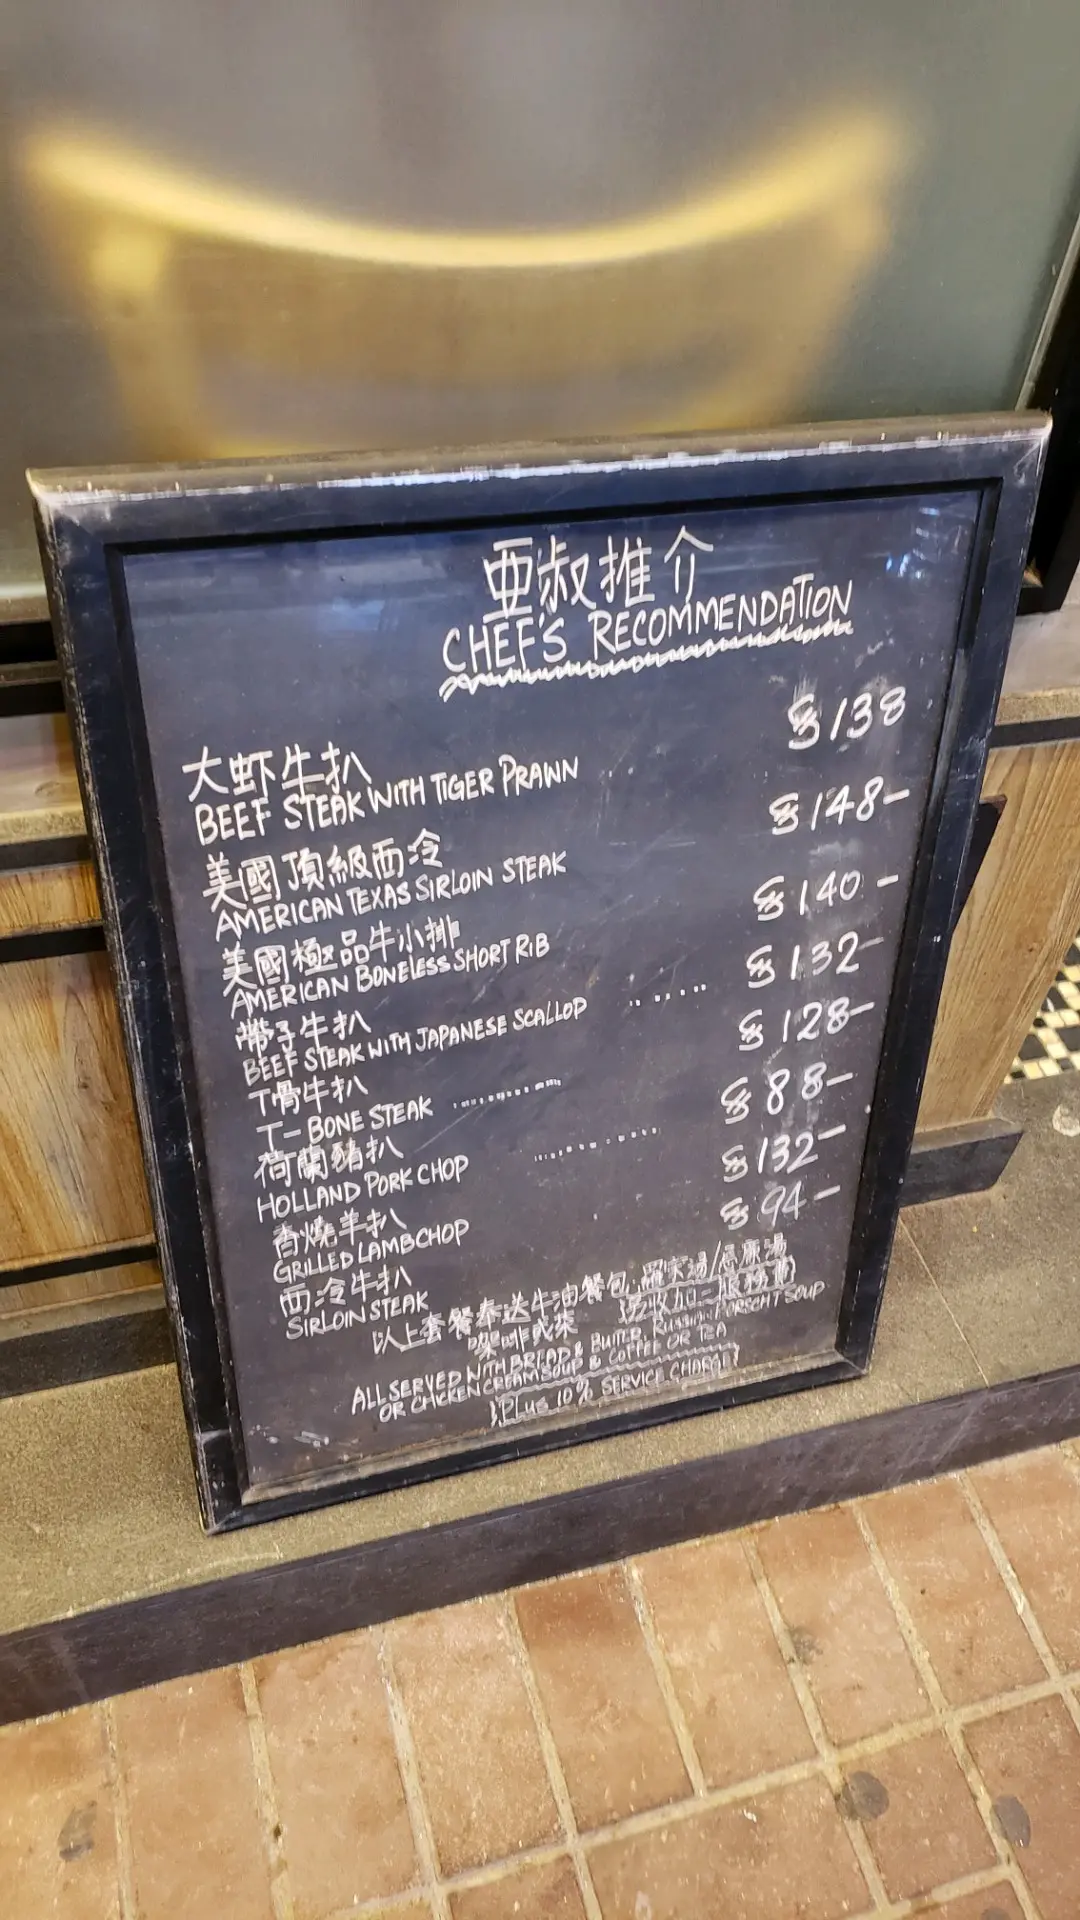 亞叔推介
CHEF'S RECOMMENDATION
大虾牛扒 $138
BEEF STEAK WITH TIGER PRAWN
美國頂級西冷 $148-
AMERICAN TEXAS SIRLOIN STEAK
美國極品牛小排 $140-
AMERICAN BONELESS SHORT RIB
帶子牛扒 $132-
BEEF STEAK WITH JAPANESE SCALLOP
T骨牛扒 $128-
T-BONE STEAK
荷蘭豬扒 $88-
HOLLAND PORK CHOP
香燒羊扒 $132-
GRILLED LAMB CHOP
西冷牛扒 $94-
SIRLOIN STEAK
以上套餐奉送牛油餐包, 羅宋湯/忌廉湯
咖啡或茶 另收加一服務費
ALL SERVED WITH BREAD & BUTTER, RUSSIAN BORSCHT SOUP
OR CHICKEN CREAM SOUP & COFFEE OR TEA
PLUS 10% SERVICE CHARGE